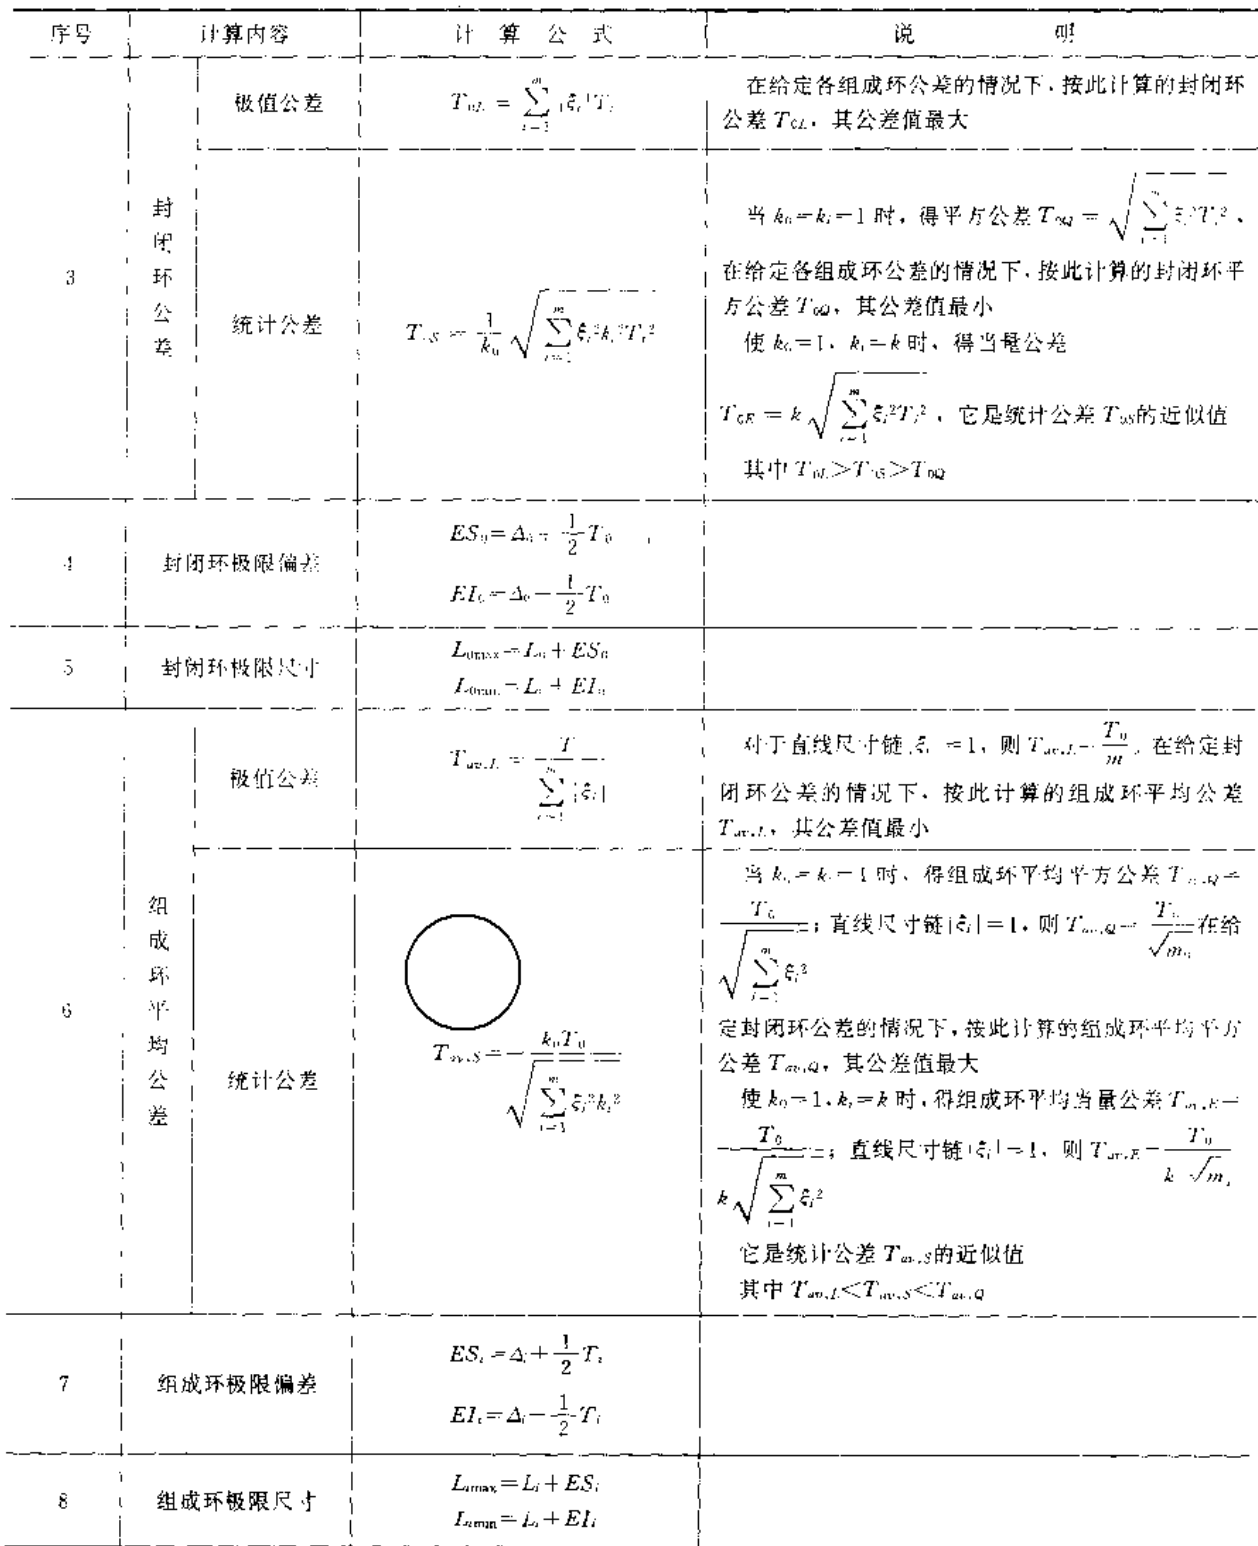 序号 计算内容 计算公式 说明
3
封闭环公差
极值公差
T₀L = ∑ᵢ₌₁ᵐ |ξᵢ|Tᵢ
在给定各组成环公差的情况下，按此计算的封闭环
公差 T₀L，其公差值最大
统计公差
T₀S = 1/k₀ √(∑ᵢ₌₁ᵐ ξᵢ²kᵢ²Tᵢ²)
当 k₀=kᵢ=1 时，得平方公差 T₀Q = √(∑ᵢ₌₁ᵐ ξᵢ²Tᵢ²)，
在给定各组成环公差的情况下，按此计算的封闭环平
方公差 T₀Q，其公差值最小
使 k₀=1，kᵢ=k 时，得当量公差
T₀E = k √(∑ᵢ₌₁ᵐ ξᵢ²Tᵢ²)，它是统计公差 T₀S的近似值
其中 T₀L>T₀S>T₀Q
4
封闭环极限偏差
ES₀=Δ₀+1/2 T₀
EI₀=Δ₀−1/2 T₀
5
封闭环极限尺寸
L₀max=L₀+ES₀
L₀min=L₀+EI₀
6
组成环平均公差
极值公差
Tav,L = T / ∑ᵢ₌₁ᵐ |ξᵢ|
对于直线尺寸链|ξᵢ|=1，则 Tav,L=T₀/m。在给定封
闭环公差的情况下，按此计算的组成环平均公差
Tav,L，其公差值最小
统计公差
Tav,S = k₀T₀ / √(∑ᵢ₌₁ᵐ ξᵢ²kᵢ²)
当 k₀=kᵢ=1 时，得组成环平均平方公差 Tav,Q=
T₀ / √(∑ᵢ₌₁ᵐ ξᵢ²)；直线尺寸链|ξᵢ|=1，则 Tav,Q=T₀/√m。在给
定封闭环公差的情况下，按此计算的组成环平均平方
公差 Tav,Q，其公差值最大
使 k₀=1，kᵢ=k 时，得组成环平均当量公差 Tav,E=
T₀ / k√(∑ᵢ₌₁ᵐ ξᵢ²)；直线尺寸链|ξᵢ|=1，则 Tav,E=T₀/k√m，
它是统计公差 Tav,S的近似值
其中 Tav,L<Tav,S<Tav,Q
7
组成环极限偏差
ESᵢ=Δᵢ+1/2 Tᵢ
EIᵢ=Δᵢ−1/2 Tᵢ
8
组成环极限尺寸
Lᵢmax=Lᵢ+ESᵢ
Lᵢmin=Lᵢ+EIᵢ